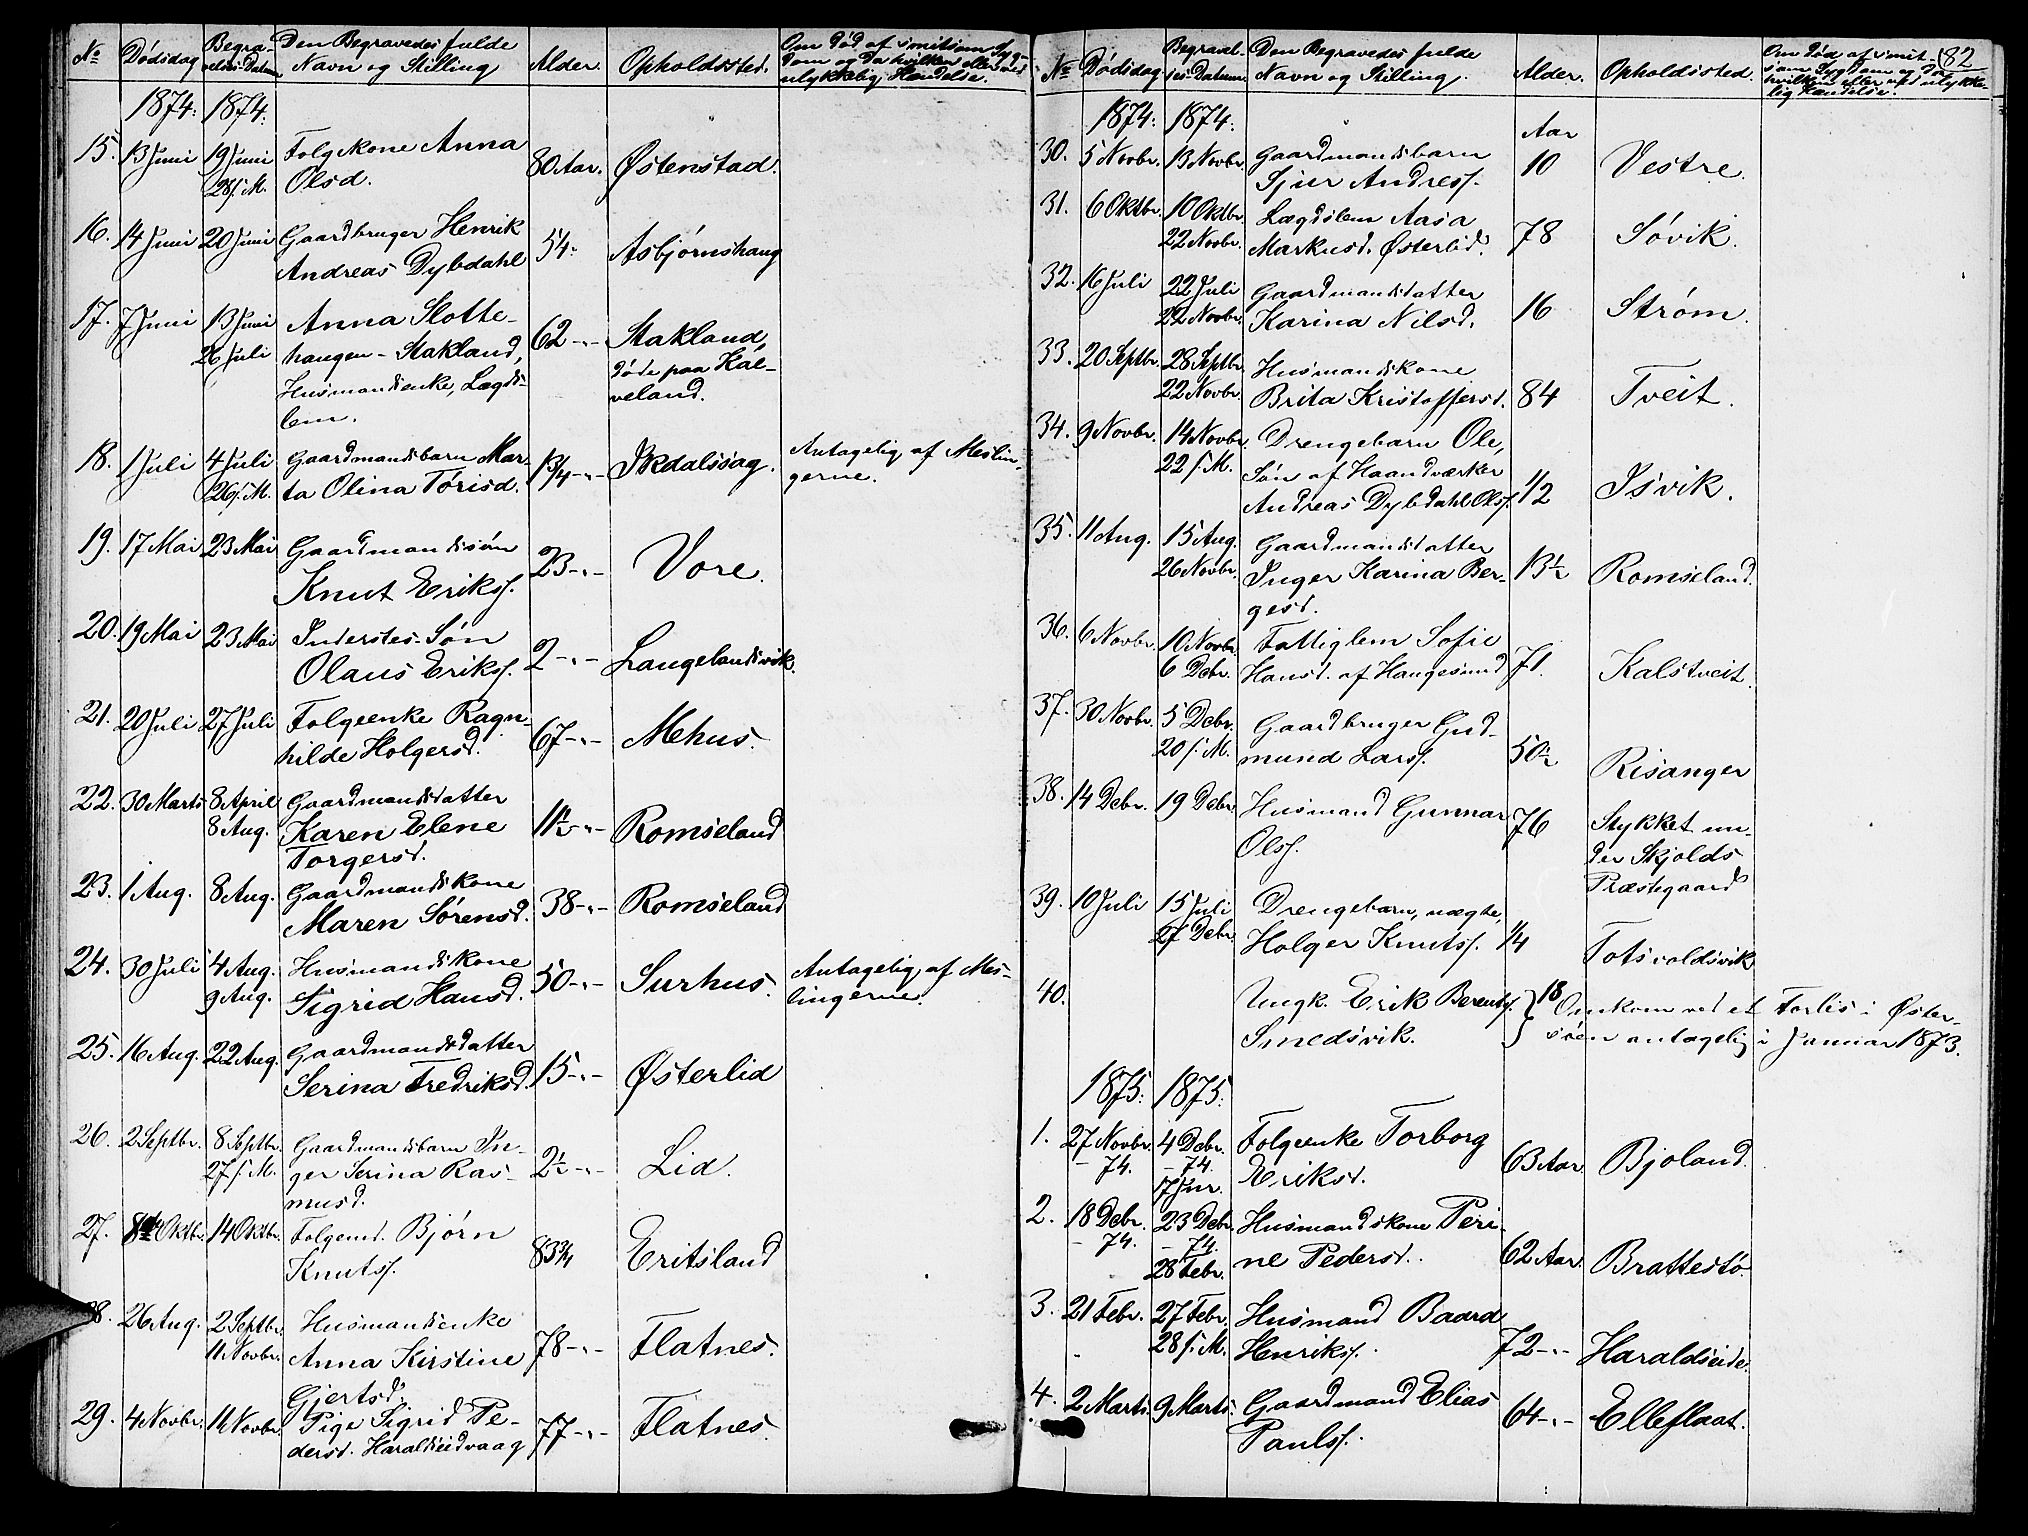 No Dødsdag Begra- Den Begravedes fulde Alder. Opholdssted. Om død af smitsom Syg-
velses Datum Navn og Stilling dom og da hvilken eller ved
ulykkelig Hændelse.
1874: 1874:
15. 13 Juni 19 Juni Folgekone Anna 80 Aar. Østenstad.
28 s. M. Olsd.
16. 14 Juni 20 Juni Gaardbruger Henrik 54: Asbjørnshaug
Andreas Dybdahl
17. 7 Juni 13 Juni Anna Slotte- 62 -"- Stakland,
26 Juli haugen - Stakland, døde paa Kal-
Husmandsenke, Lægds- veland.
lem.
18. 1 Juli 4 Juli Gaardmandsbarn Mar- 1 3/4 -"- Skdalssag. Antagelig af Meslin-
26 s. M. ta Olina Tórisd. gerne.
19. 17 Mai 23 Mai Gaardmandssøn 23 -"- Vore.
Knut Erikss.
20. 19 Mai 23 Mai Inderstes-Søn 2 -"- Langelandsvik.
Olaus Erikss.
21. 20 Juli 27 Juli Folgeenke Ragn- 67 -"- Mehus.
hilde Holgersd.
22. 30 Marts 8 April Gaardmandsdatter 11 1/2 -"- Romseland
8 Aug. Karen Elene
Torgersd.
23. 1 Aug. 8 Aug. Gaardmandskone 38 -"- Romseland
Maren Sørensd.
24. 30 Juli 4 Aug. Husmandskone 50 -"- Surhus. Antagelig af Mes-
9 Aug. Sigrid Hansd. lingerne.
25. 16 Aug. 22 Aug. Gaardmandsdatter 15 -"- Østerlid
Serina Fredriksd.
26. 2 Septbr. 8 Septbr. Gaardmandsbarn In- 2 1/2 -"- Lid.
27 s. M. ger Serina Ras-
musd.
27. 8 Oktbr. 14 Oktbr. Folgemd. Bjørn 83 3/4 Eritsland
Knutss.
28. 26 Aug. 2 Septbr. Husmandsenke 78 -"- Flatnes.
11 Novbr. Anna Kirstine
Gjertsd.
29. 4 Novbr. 11 Novbr. Pige Sigrid Pe- 77 -"- Flatnes.
dersd. Haraldseidvaag
82
No Dødsdag Begravel- Den Begravedes fulde Alder. Opholdssted. Om død af smit-
ses Datum Navn og Stilling. som Sygdom og da
hvilken eller ved ulykke-
lig Hændelse.
1874: 1874: Aar
30. 5 Novbr. 13 Novbr. Gaardmandsbarn 10 Vestre.
Sjur Andress.
31. 6 Oktbr. 10 Oktbr. Lægdslem Aasa 78 Søvik.
22 Novbr. Markusd. Østerlid.
32. 16 Juli 22 Juli Gaardmandsdatter 16 Strøm.
22 Novbr. Karina Nilsd.
33. 20 Septbr. 28 Septbr. Husmandskone
22 Novbr. Brita Kristoffersd. 84 Tveit.
34. 9 Novbr. 14 Novbr. Drengebarn Ole,
22 s. M. Søn af Haandværker
Andreas Dybdahl Olss. 1/2 Isvik.
35. 11 Aug. 15 Aug. Gaardmandsdatter
26 Novbr. Inger Karina Ber- 13 1/2 Romseland.
gesd.
36. 6 Novbr. 10 Novbr. Fattiglem Sofie
6 Debr. Hansd. af Haugesund 71. Kalstveit.
37. 30 Novbr. 5 Debr. Gaardbruger Gud-
20 s. M. mund Larss. 50 1/2 Risanger
38. 14 Debr. 19 Debr. Husmand Gunnar 76 Stykket un-
Olss. der Skjolds
Præstegaard
39. 10 Juli 15 Juli Drengebarn, uægte,
27 Debr. Holger Knutss. 1/4 Totsvoldsvik
40. Ungk. Erik Berents. 18 Omkom ved et Forlis i Øster-
Smedsvik. søen antagelig i Januar 1873.
1875: 1875:
1. 27 Novbr. 4 Debr. Folgeenke Torborg 63 Aar Bjoland.
- 74. - 74. Eriksd.
17 Jnr.
2. 18 Debr. 23 Debr. Husmandskone Peri-
- 74. - 74. ne Pedersd. 62 Aar. Brattestø.
28 Febr.
3. 21 Febr. 27 Febr. Husmand Baard
28 s. M. Henrikss. 72 -"- Haraldseide.
4. 2 Marts. 9 Marts. Gaardmand Elias 64 -"- Elleflaat.
Paulss.